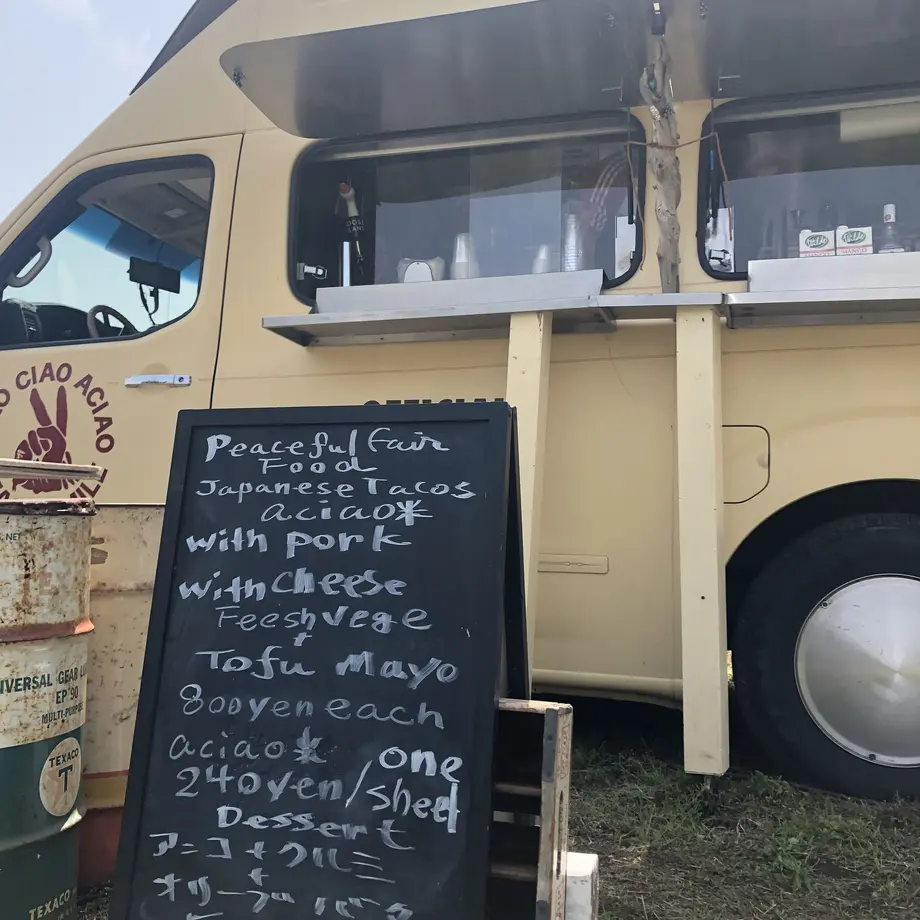 CIAO ACIAO
Peaceful Fair
Food
Japanese Tacos
aciao*
with pork
with cheese
Feesh vege
+
Tofu Mayo
800yen each
aciao*
one
240yen/sheet
Dessert
アニコ+クルミ
+
オリーブ
NET
IVERSAL GEAR L
EP 90
MULTI-PURP
TEXACO
T
TEXACO